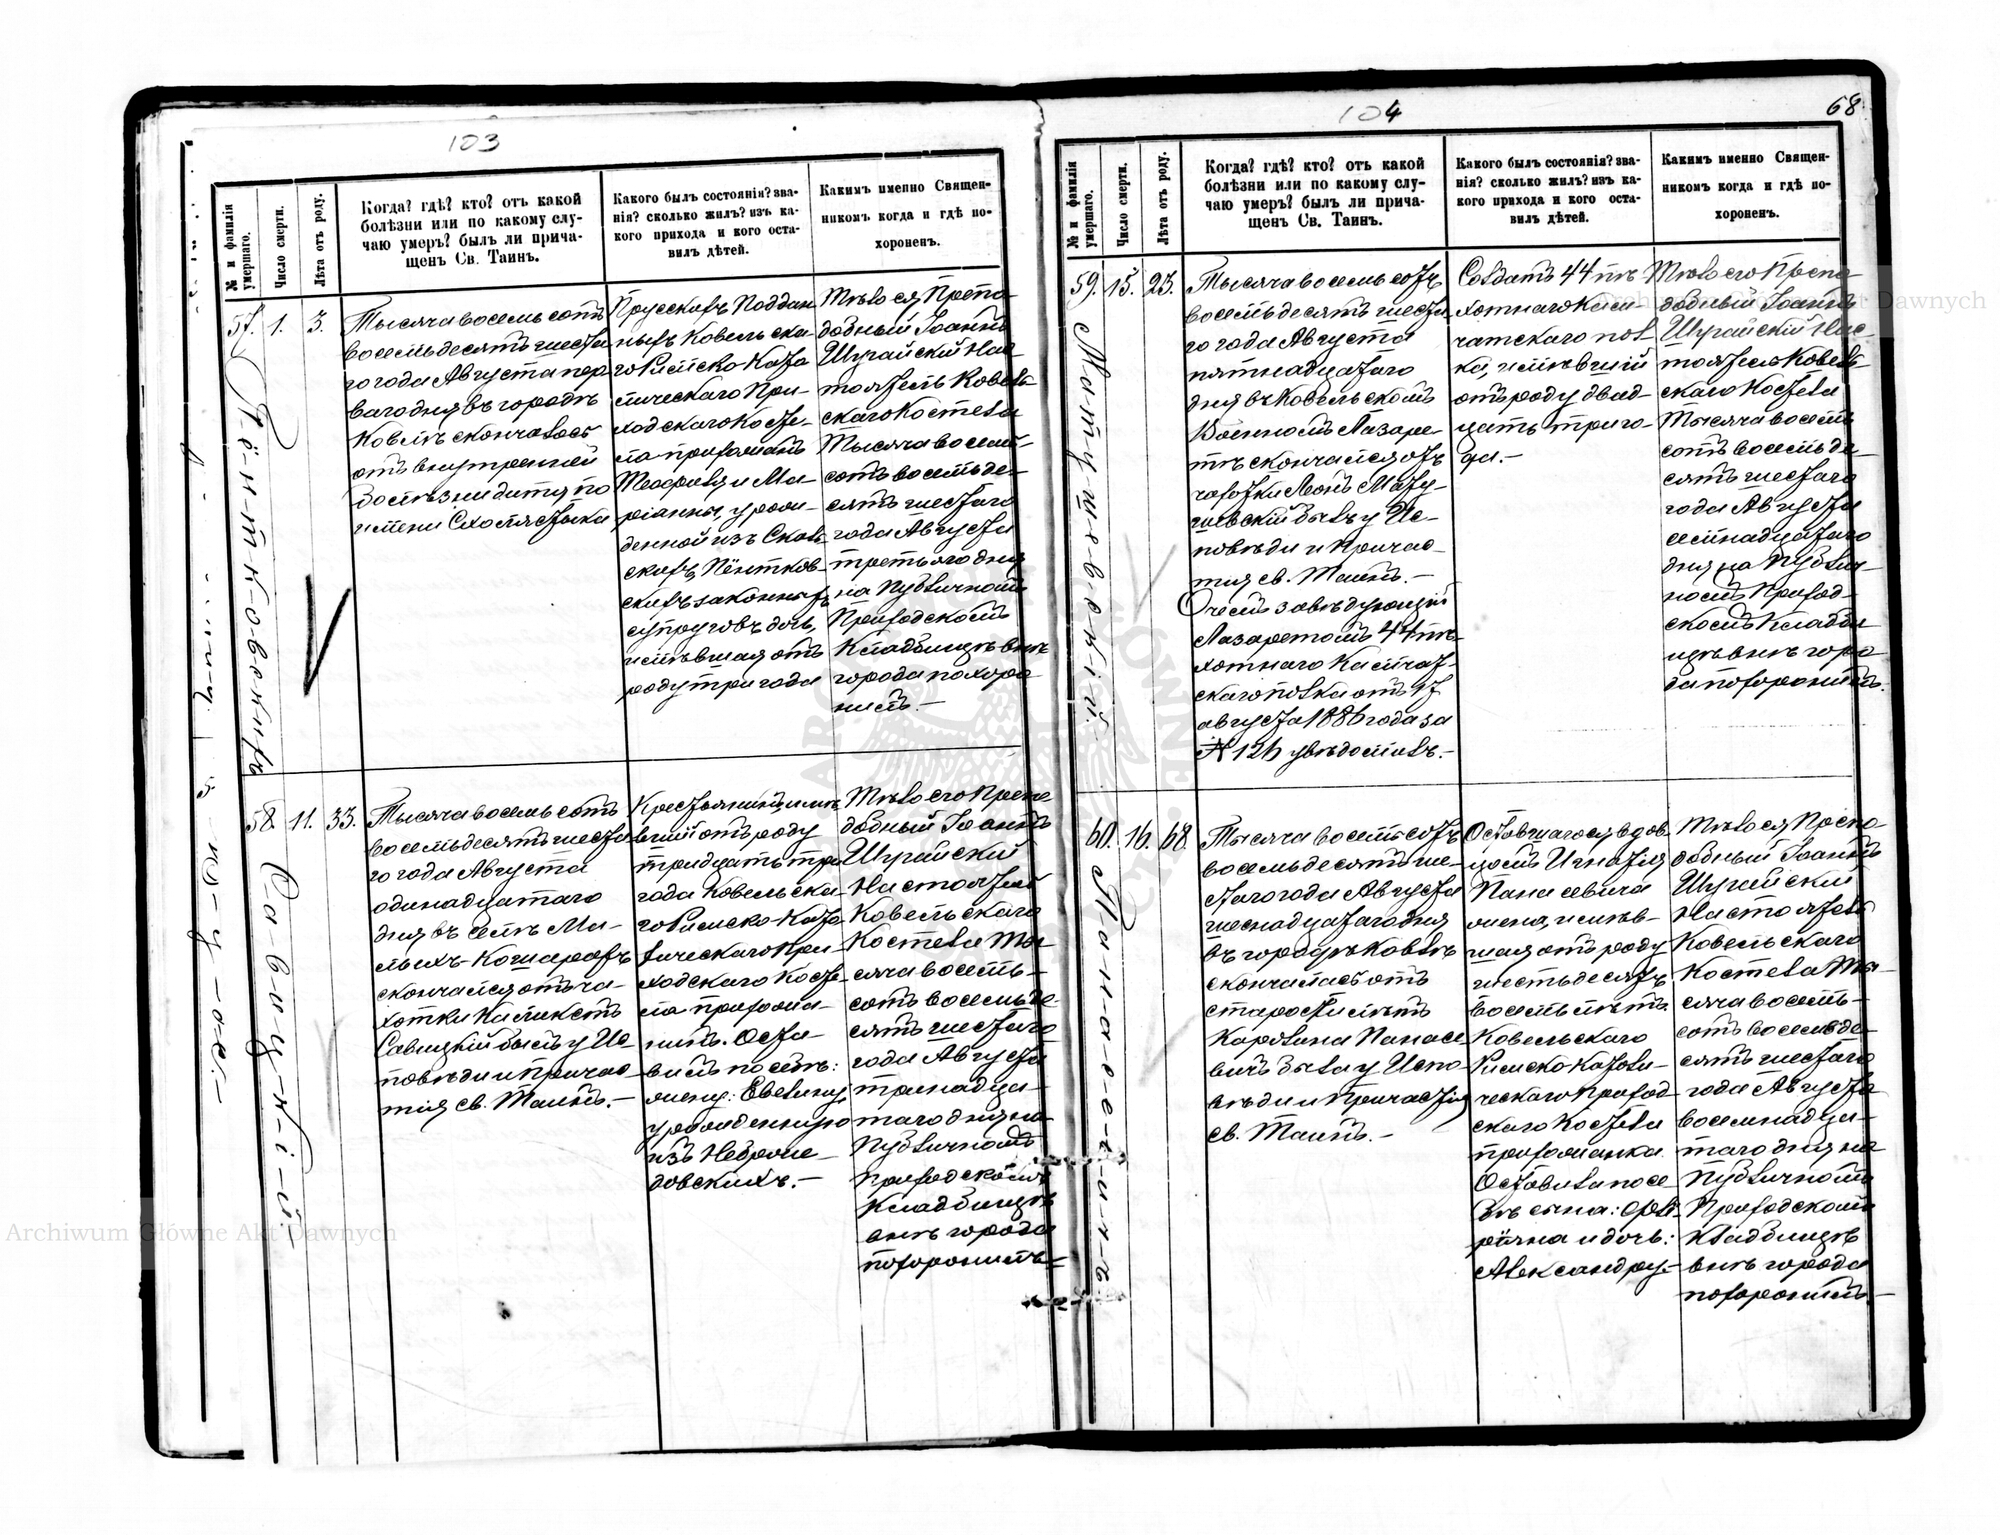 103
№ и фамилія умершаго.
Число смерти.
Лѣта отъ роду.
Когда? гдѣ? кто? отъ какой
болѣзни или по какому слу-
чаю умеръ? былъ ли прича-
щенъ Св. Таинъ.
Какого былъ состоянія? зва-
нія? сколько жилъ? изъ ка-
кого прихода и кого оста-
вилъ дѣтей.
Какимъ именно Священ-
никомъ когда и гдѣ по-
хороненъ.
57.
1.
3.
Тысяча восемь сотъ
восемьдесятъ шеста
го года Августа пер
ваго дня въ городѣ
Ковелѣ скончалась
отъ внутренней
болѣзни дитя по
имени Схолястыка
Прусскихъ Поддан
ныхъ Ковельска
го Римско-Като
лическаго При-
ходскаго Косте-
ла прихожанъ
Теофиля и Ма-
ріанны, урож-
денной изъ
скихъ, Пёнтков-
скихъ законныхъ
супруговъ дочь,
имѣвшая отъ
роду три года
Тѣло ея Препо-
добный Іоаннъ
Шугайскій Нас
тоятель Ковель
скаго Костела
Тысяча восемь-
сотъ восемьде-
сятъ шестаго
года Августа
третьяго дня
на Публичномъ
Приходскомъ
Кладбищѣ внѣ
города похоро
нилъ.-
58.
11.
33.
Савицкій.
Тысяча восемь сотъ
восемьдесятъ шеста
го года Августа
одинадцатаго
дня въ селѣ Ми-
лыхъ-Кошарахъ
скончался отъ ча-
хотки Каликстъ
Савицкій былъ у Ис
повѣди и Причас
тія св. Таинъ.-
Крестьянинъ, имѣ
вшій отъ роду
тридцать три
года Ковельска-
го Римско-Като
лическаго При-
ходскаго Косте-
ла прихожа-
нинъ. Оста-
вилъ по себѣ:
жену: Евелину,
урожденную
изъ
довскихъ.-
Тѣло его Препо
добный Іоаннъ
Шугайскій
Настоятель
Ковельскаго
Костела Ты-
сяча восемь-
сотъ восемьде-
сятъ шестаго
года Августа
тринадца-
таго дня на
Публичномъ
Приходскомъ
Кладбищѣ
внѣ города
похоронилъ.-
104
68
№ и фамилія умершаго.
Число смерти.
Лѣта отъ роду.
Когда? гдѣ? кто? отъ какой
болѣзни или по какому слу-
чаю умеръ? былъ ли прича-
щенъ Св. Таинъ.
Какого былъ состоянія? зва-
нія? сколько жилъ? изъ ка-
кого прихода и кого оста-
вилъ дѣтей.
Какимъ именно Священ-
никомъ когда и гдѣ по-
хороненъ.
59.
15.
23.
Матушевскій.
Тысяча восемь сотъ
восемьдесятъ шеста
го года Августа
пятнадцатаго
дня въ Ковельскомъ
Военномъ Лазаре-
тѣ скончался отъ
чахотки Леонъ Мату-
шевскій былъ у Ис-
повѣди и Причас-
тія св. Таинъ.-
О чемъ завѣдующій
Лазаретомъ 44 пѣ-
хотнаго Камчат-
скаго полка отъ 17
августа 1886 года за
№ 126 увѣдомилъ.-
Солдатъ 44 пѣ
хотнаго Кам-
чатскаго пол-
ка, имѣвшій
отъ роду двад-
цать три го-
да.-
Тѣло его Препо
добный Іоаннъ
Шугайскій Нас-
тоятель Ковель-
скаго Костела
Тысяча восемь
сотъ восемьде-
сятъ шестаго
года Августа
семнадцатаго
дня на Публич-
номъ Приход-
скомъ Кладби
щѣ внѣ горо
да похоронилъ.
60.
16.
68.
Панасевичъ
Тысяча восемь сотъ
восемьдесятъ ше-
стаго года Августа
шеснадцатаго дня
въ городѣ Ковелѣ
скончалась отъ
старости лѣтъ
Каролина Панасе
вичъ была у Испо-
вѣди и Причастія
св. Таинъ.-
Оставшагося вдов
цомъ Игнатія
Панасевича
жена, имѣв-
шая отъ роду
шестьдесятъ
восемь лѣтъ
Ковельскаго
Римско-Католи-
ческаго Приход
скаго Костела
прихожанка.
Оставила по се
бѣ сына: Фло-
ріяна и дочь:
Александру.-
Тѣло ея Препо-
добный Іоаннъ
Шугайскій
Настоятель
Ковельскаго
Костела Ты-
сяча восемь-
сотъ восемьде-
сятъ шестаго
года Августа
восемнадца-
таго дня на
Публичномъ
Приходскомъ
Кладбищѣ
внѣ города
похоронилъ.-
Archiwum Główne Akt Dawnych